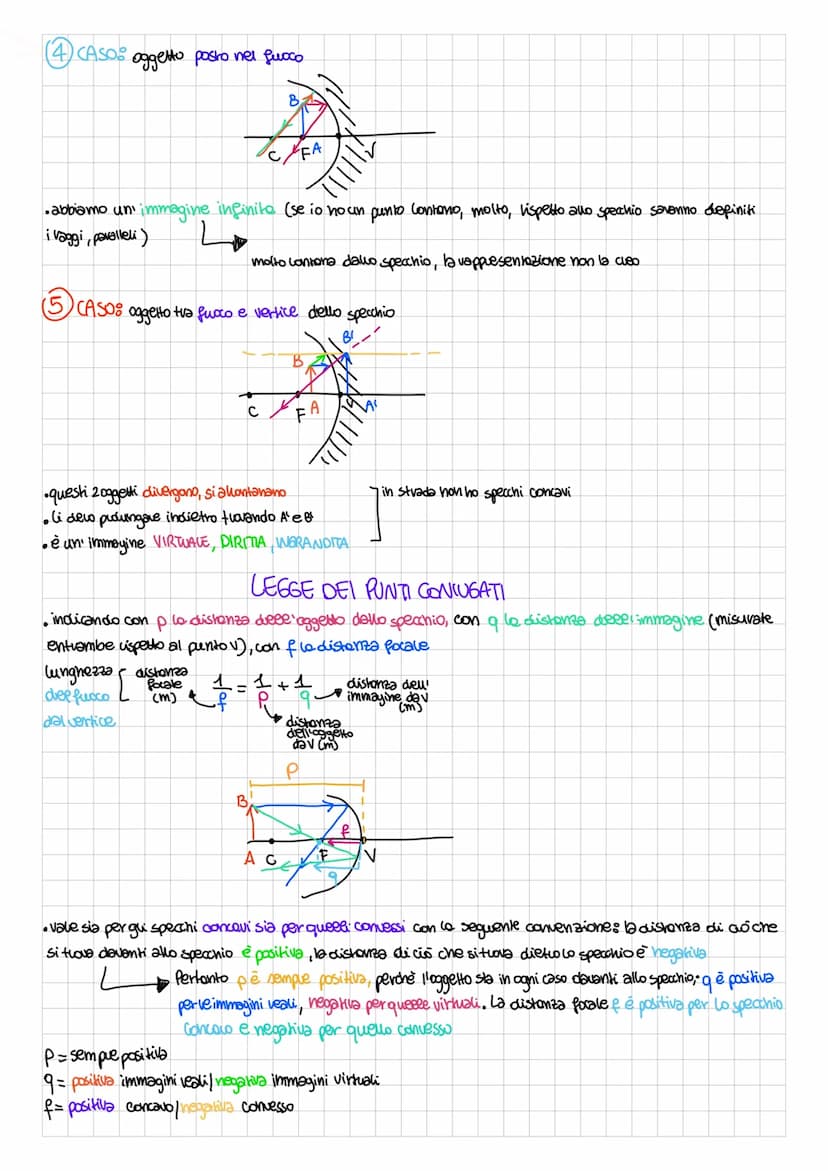 4 CASO: oggetto posto nel fuoco
B
C F A V
• abbiamo un' immagine infinita (se io ho un punto lontano, molto, rispetto allo specchio saranno definiti
i raggi, paralleli)
molto lontana dallo specchio, la rappresentazione non la creo
5 CASO: oggetto tra fuoco e vertice dello specchio
B'
B
C F A V A'
• questi 2 oggetti divergono, si allontanano
in strada non ho specchi concavi
• li devo prolungare indietro trovando A' e B'
• è un' immagine VIRTUALE, DIRITTA, INGRANDITA
LEGGE DEI PUNTI CONIUGATI
• indicando con p la distanza dell'oggetto dallo specchio, con q la distanza dell'immagine (misurate
entrambe rispetto al punto V), con f la distanza focale
lunghezza
del fuoco
dal vertice
distanza
focale
(m)
1/f = 1/p + 1/q
distanza dell'
immagine da V
(m)
distanza
dell'oggetto
da V (m)
P
B
f
A C F V
q
• vale sia per gli specchi concavi sia per quelli convessi con la seguente convenzione: la distanza di ciò che
si trova davanti allo specchio è positiva, la distanza di ciò che si trova dietro lo specchio è negativa
Pertanto p è sempre positiva, perché l'oggetto sta in ogni caso davanti allo specchio; q è positiva
per le immagini reali, negativa per quelle virtuali. La distanza focale f è positiva per lo specchio
concavo e negativa per quello convesso
P = sempre positiva
q = positiva immagini reali/negativa immagini virtuali
f = positiva concavo/negativa convesso